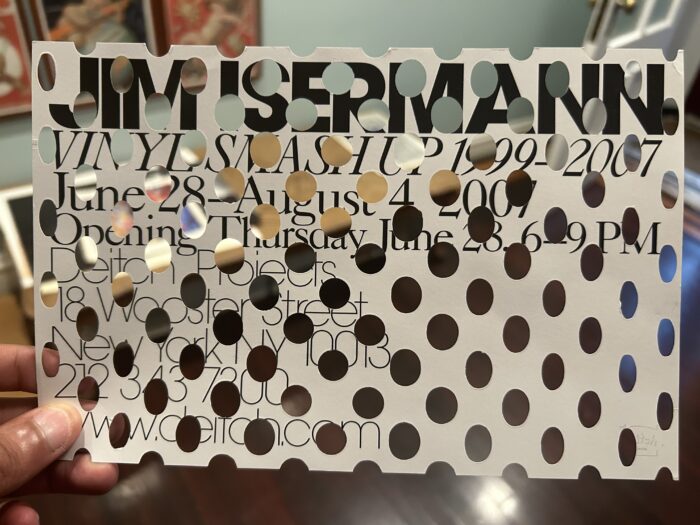 JIM ISERMANN
VINYL SMASH UP 1999–2007
June 28–August 4, 2007
Opening: Thursday, June 28, 6–9 PM
Deitch Projects
18 Wooster Street
New York NY 10013
212 343 7300
www.deitch.com